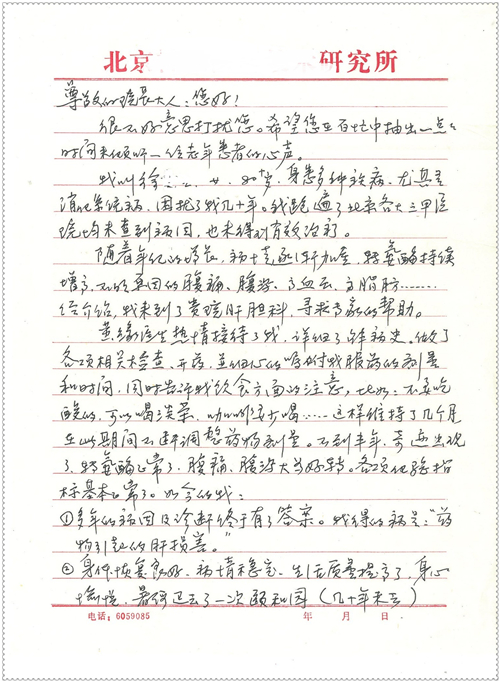 北京 研究所
尊敬的院长大人：您好！
很不好意思打扰您。希望您在百忙中抽出一点点
时间来倾听一位老年患者的心声。
我叫徐 岁，身患多种疾病，尤其是
消化系统病，困扰了我几十年。我跑遍了北京各大三甲医
院均未查到病因，也未得到有效治疗。
随着年纪的增长，病情逐渐加重，转氨酶持续
增高，不明原因的腹痛、腹泻、高血压、高脂肪……
经介绍，我来到了贵院肝胆科，寻求专家的帮助。
黄缘医生热情接待了我，详细了解病史、做了
各项相关检查、开药，并细心的嘱咐我服药的剂量
和时间，同时告诉我饮食方面的注意，比如：不要吃
酸的，可以喝淡茶，咖啡要少喝……这样维持了几个月
在此期间不断调整药物剂量。不到半年，奇迹出现
了，转氨酶正常了，腹痛、腹泻大为好转。各项化验指
标基本正常了。如今的我：
①多年的病因及诊断终于有了答案。我得的病是：“药
物引起的肝损害。”
②身体恢复良好，病情稳定，生活质量提高了，身心
愉悦，暑假还去了一次颐和园（几十年未去）
电话：6059085 年 月 日